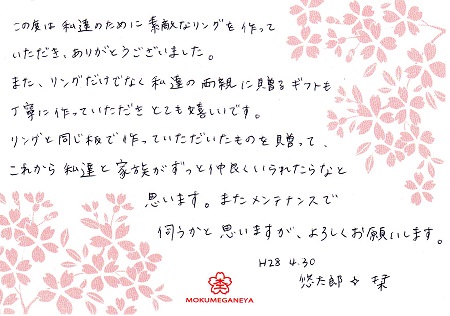 この度は私達のために素敵なリングを作って
いただき、ありがとうございました。
また、リングだけでなく私達の両親に贈るギフトも
丁寧に作っていただきとても嬉しいです。
リングと同じ板で作っていただいたものを贈って、
これから私達と家族がずっと仲良くいられたらなと
思います。またメンテナンスで
伺うかと思いますが、よろしくお願いします。
H28 4.30
悠太郎 ✧ 栞
MOKUMEGANEYA